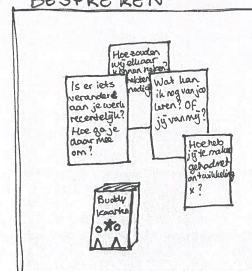 BESPREKEN
Hoe zouden
wij elkaar
kunnen
nodig
Is er iets
veranderd
aan je werk
recentelijk?
Hoe ga je
daar mee
om?
Wat kan
ik nog van jou
leren? Of
jij van mij?
Hoe heb
jij te maken
gehad met
ontwikkeling
x?
Buddy
kaarten